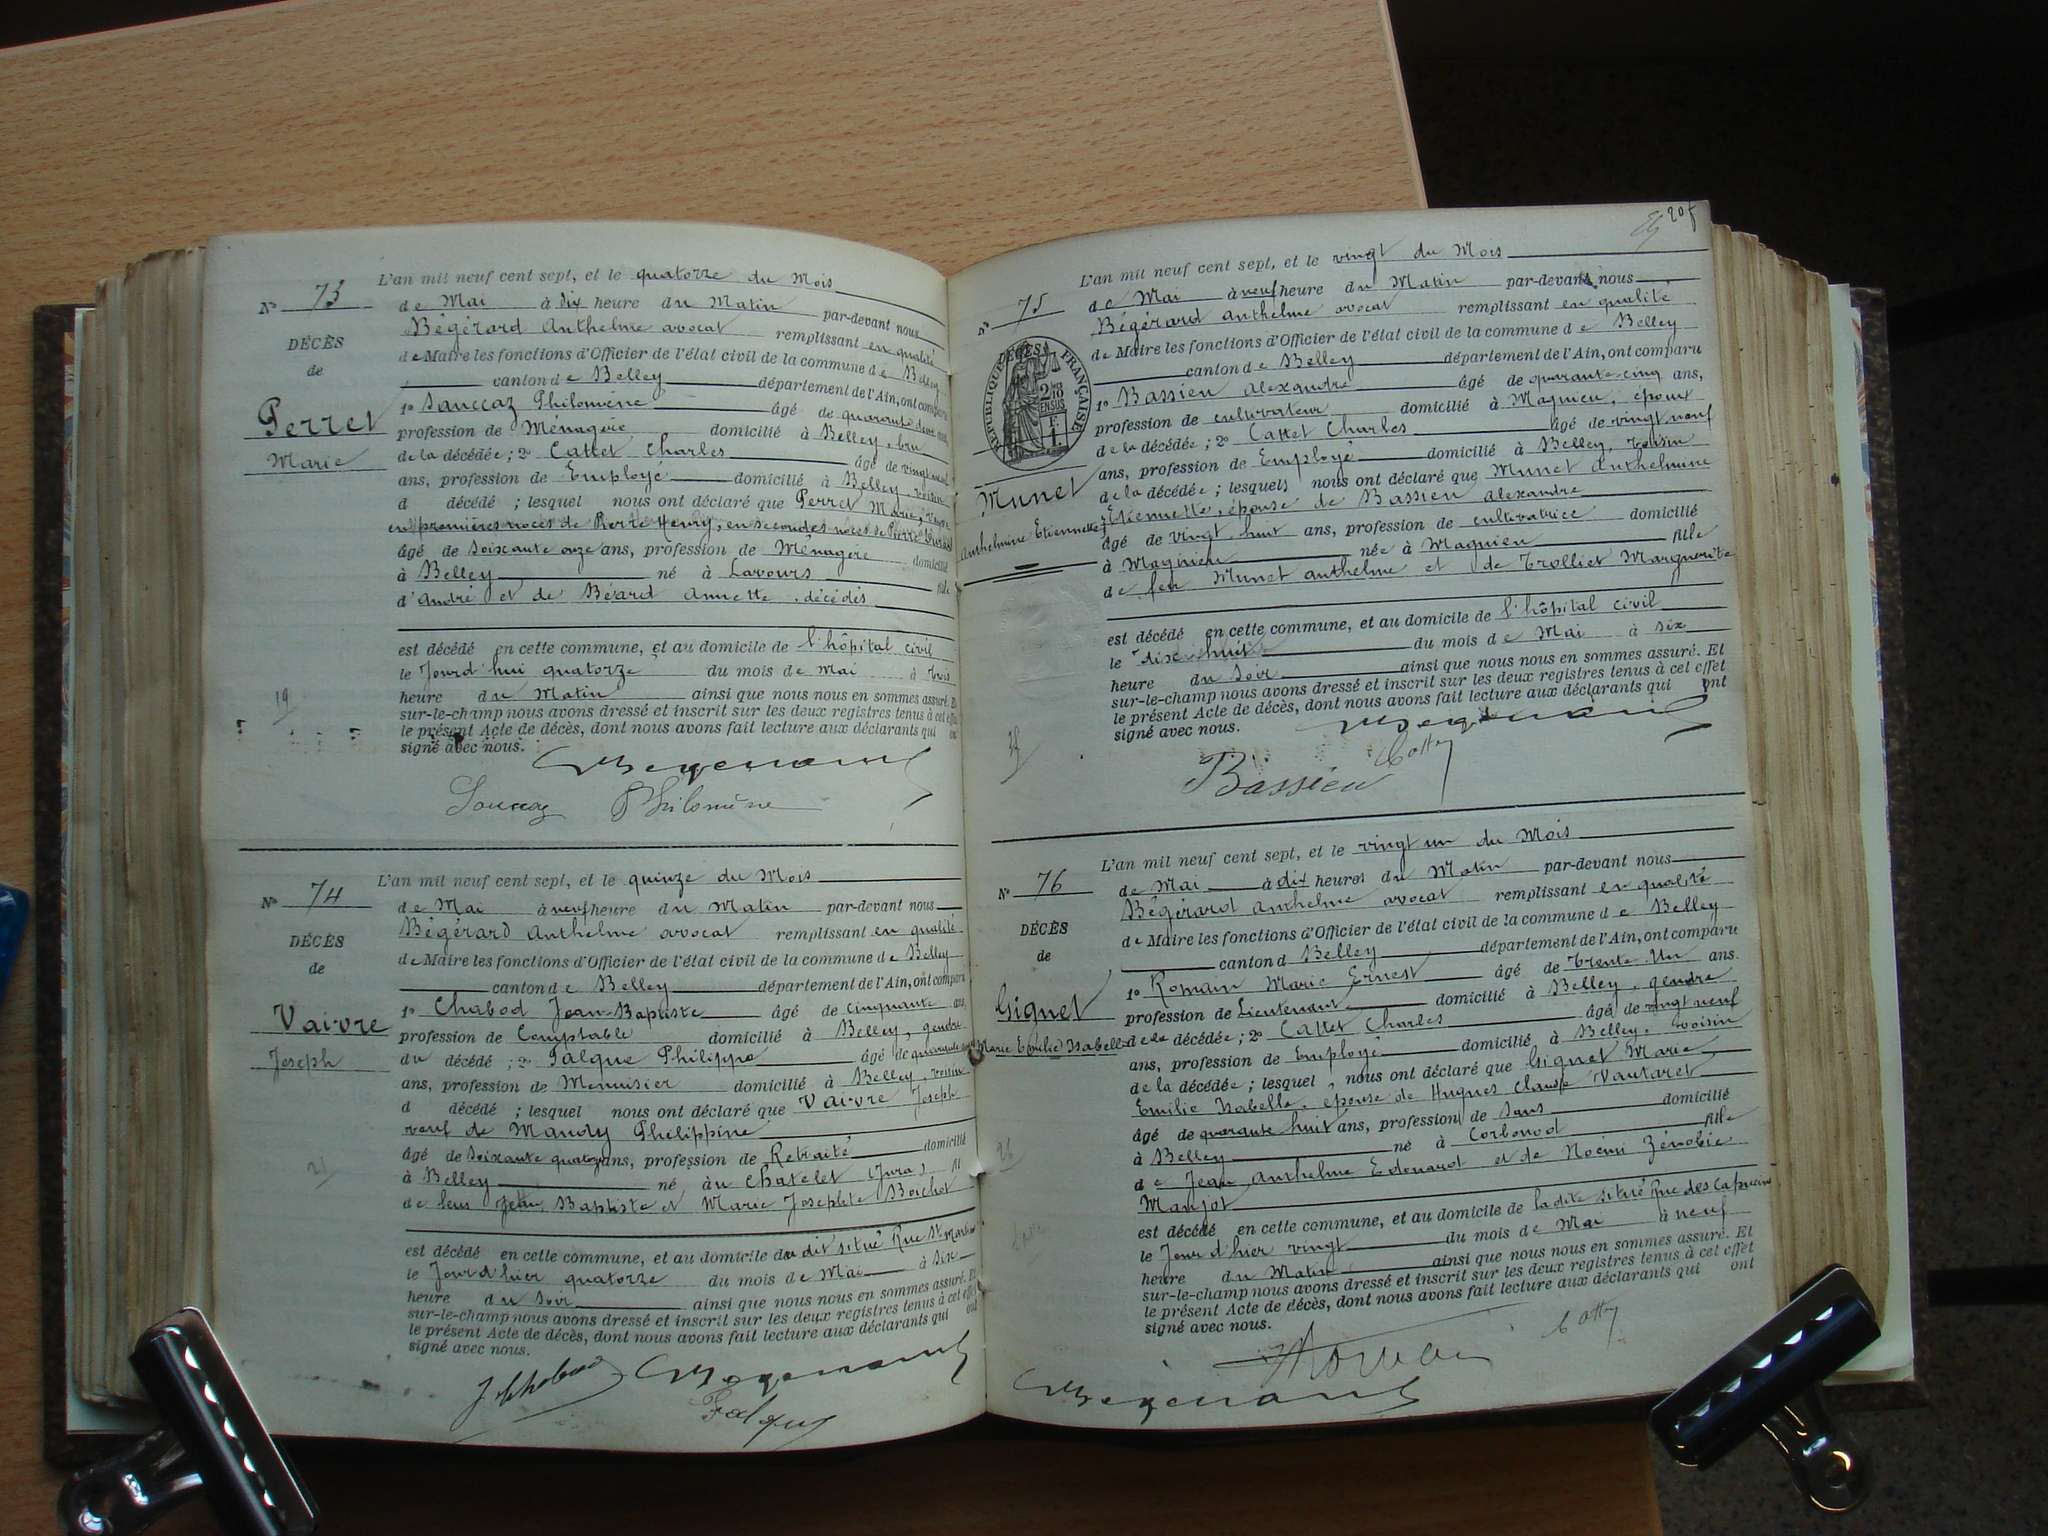 L'an mil neuf cent sept, et le quatorze du Mois
No 73
de Mai à dix heure du Matin par-devant nous
Bégérard Anthelme avocat remplissant en qualité
DÉCÈS
de Maire les fonctions d'Officier de l'état civil de la commune de Belley
de
canton de Belley département de l'Ain, ont comparu
1o Philomène âgé de quarante
Perret
profession de Ménagère domicilié à Belley, bru
Marie
de la décédée; 2o Cattet Charles âgé de vingt neuf
ans, profession de Employé domicilié à Belley, voisin
d décédé ; lesquel nous ont déclaré que Perret Marie, veuve
en premières noces de Pierre Henry, en secondes noces de Pierre
âgé de soixante onze ans, profession de Ménagère domicilié
à Belley né à Lavours fille
d'André et de Béard Annette, décédés
est décédé en cette commune, et au domicile de l'hôpital civil
le Jourd'hui quatorze du mois de Mai à trois
heure du Matin ainsi que nous nous en sommes assuré. Et
19
sur-le-champ nous avons dressé et inscrit sur les deux registres tenus à cet effet
le présent Acte de décès, dont nous avons fait lecture aux déclarants qui ont
signé avec nous.
Philomène
L'an mil neuf cent sept, et le quinze du Mois
No 74
de Mai à neuf heure du Matin par-devant nous
Bégérard Anthelme avocat remplissant en qualité
DÉCÈS
de Maire les fonctions d'Officier de l'état civil de la commune de Belley
de
canton de Belley département de l'Ain, ont comparu
1o Chabod Jean-Baptiste âgé de cinquante ans,
Vaivre
profession de Comptable domicilié à Belley, gendre
Joseph
du décédé ; 2o Falque Philippe âgé de quarante
ans, profession de Menuisier domicilié à Belley, voisin
d décédé ; lesquel nous ont déclaré que Vaivre Joseph
veuf de Mandy Philippine
âgé de soixante quatorze ans, profession de Retraité domicilié
21
à Belley né au Chatelet (Jura) fils
de feus Jean Baptiste et Marie Josephte Boichot
est décédé en cette commune, et au domicile du dit situé Rue St Martin
le Jourd'hier quatorze du mois de Mai à six
heure du soir ainsi que nous nous en sommes assuré. Et
sur-le-champ nous avons dressé et inscrit sur les deux registres tenus à cet effet
le présent Acte de décès, dont nous avons fait lecture aux déclarants qui ont
signé avec nous.
Falque
20
L'an mil neuf cent sept, et le vingt du Mois
No 75
de Mai à neuf heure du Matin par-devant nous
Bégérard Anthelme avocat remplissant en qualité
de Maire les fonctions d'Officier de l'état civil de la commune de Belley
canton de Belley département de l'Ain, ont comparu
RÉPUBLIQUE FRANÇAISE
DÉCÈS
1o Bassieu Alexandre âgé de quarante-cinq ans,
profession de cultivateur domicilié à Magnieu, époux
de la décédée ; 2o Cattet Charles âgé de vingt neuf
ans, profession de Employé domicilié à Belley, voisin
de la décédée ; lesquels nous ont déclaré que Munet Anthelmine
Munet
Etiennette, épouse de Bassieu Alexandre
Anthelmine Etiennette
âgé de vingt huit ans, profession de cultivatrice domicilié
à Magnieu née à Magnieu fille
de feu Munet Anthelme et de Trolliet Marguerite
est décédé en cette commune, et au domicile de l'hôpital civil
le dix huit du mois de Mai à six
heure du soir ainsi que nous nous en sommes assuré. Et
sur-le-champ nous avons dressé et inscrit sur les deux registres tenus à cet effet
le présent Acte de décès, dont nous avons fait lecture aux déclarants qui ont
signé avec nous.
Bassieu
L'an mil neuf cent sept, et le vingt un du Mois
No 76
de Mai à dix heures du Matin par-devant nous
Bégérard Anthelme avocat remplissant en qualité
DÉCÈS
de Maire les fonctions d'Officier de l'état civil de la commune de Belley
de
canton d Belley département de l'Ain, ont comparu
1o Romain Marie Ernest âgé de Trente Un ans.
Gignet
profession de Lieutenant domicilié à Belley, gendre
Marie Emilie Isabelle
de la décédée ; 2o Cattet Charles âgé de vingt neuf
ans, profession de Employé domicilié à Belley, voisin
de la décédée ; lesquel nous ont déclaré que Gignet Marie
Emilie Isabelle, épouse de Hugues Claude Vautaret
âgé de quarante huit ans, profession de Sans domicilié
à Belley né à Corbonod fille
26
de Jean Anthelme Edouard et de Noémi Zénobie
Manjot
est décédé en cette commune, et au domicile de la dite situé Rue des Capucins
le Jour d'hier vingt du mois de Mai à neuf
heure du Matin ainsi que nous nous en sommes assuré. Et
sur-le-champ nous avons dressé et inscrit sur les deux registres tenus à cet effet
le présent Acte de décès, dont nous avons fait lecture aux déclarants qui ont
signé avec nous.